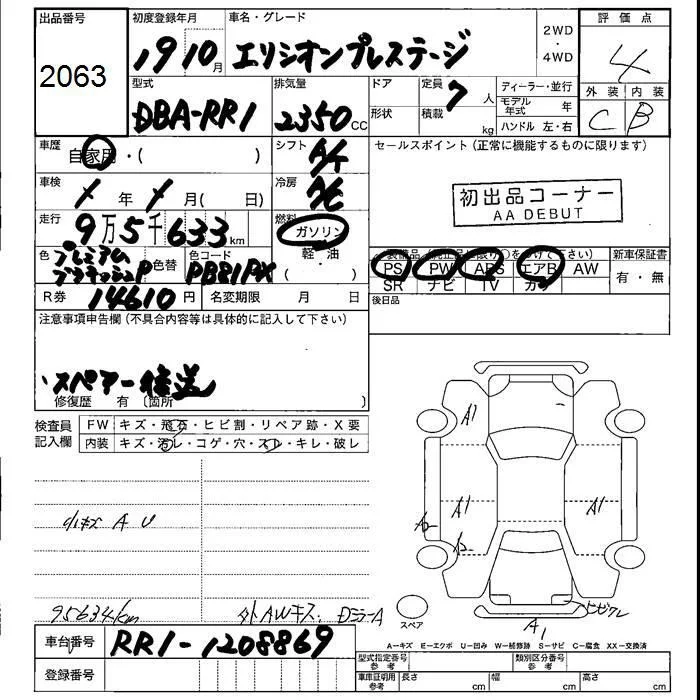 出品番号 初度登録年月 車名・グレード 2WD・4WD 評価点
2063 19 10月 エリシオンプレステージ 4
型式 排気量 ドア 定員 ディーラー・並行 外装 内装
DBA-RR1 2350cc 形状 積載 7人 kg モデル年式 年 C B
ハンドル 左・右
車歴 自家用・( ) シフト A/T セールスポイント (正常に機能するものに限ります)
車検 / 年 / 月( 日) 冷房 A/C 初出品コーナー
AA DEBUT
走行 9万5千633km 燃料 ガソリン・軽・油
色 プレミアム 色替 色コード PB81PX 装備品(純正品に限り○をつけて下さい) 新車保証書
PS PW ABS エアB AW 有・無
SR ナビ TV カワ
R券 14610円 名変期限 月 日 後日品
注意事項申告欄(不具合内容等は具体的に記入して下さい)
、スペアー後送
修復歴 有〔箇所 〕
検査員記入欄 FW キズ・飛石・ヒビ割・リペア跡・X要
内装 キズ・汚レ・コゲ・穴・スレ・キレ・破レ
A1
A1 A1
小キズ A U
95634km 外AWキズ. DミラーA
スペア
A1
A-キズ E-エクボ U-凹み W-補修跡 S-サビ C-腐食 XX-交換済
車台番号 RR1-1208869
型式指定番号 参考 類別区分番号 参考
登録番号 車庫証明用 参考 長さ cm 幅 cm 高さ cm